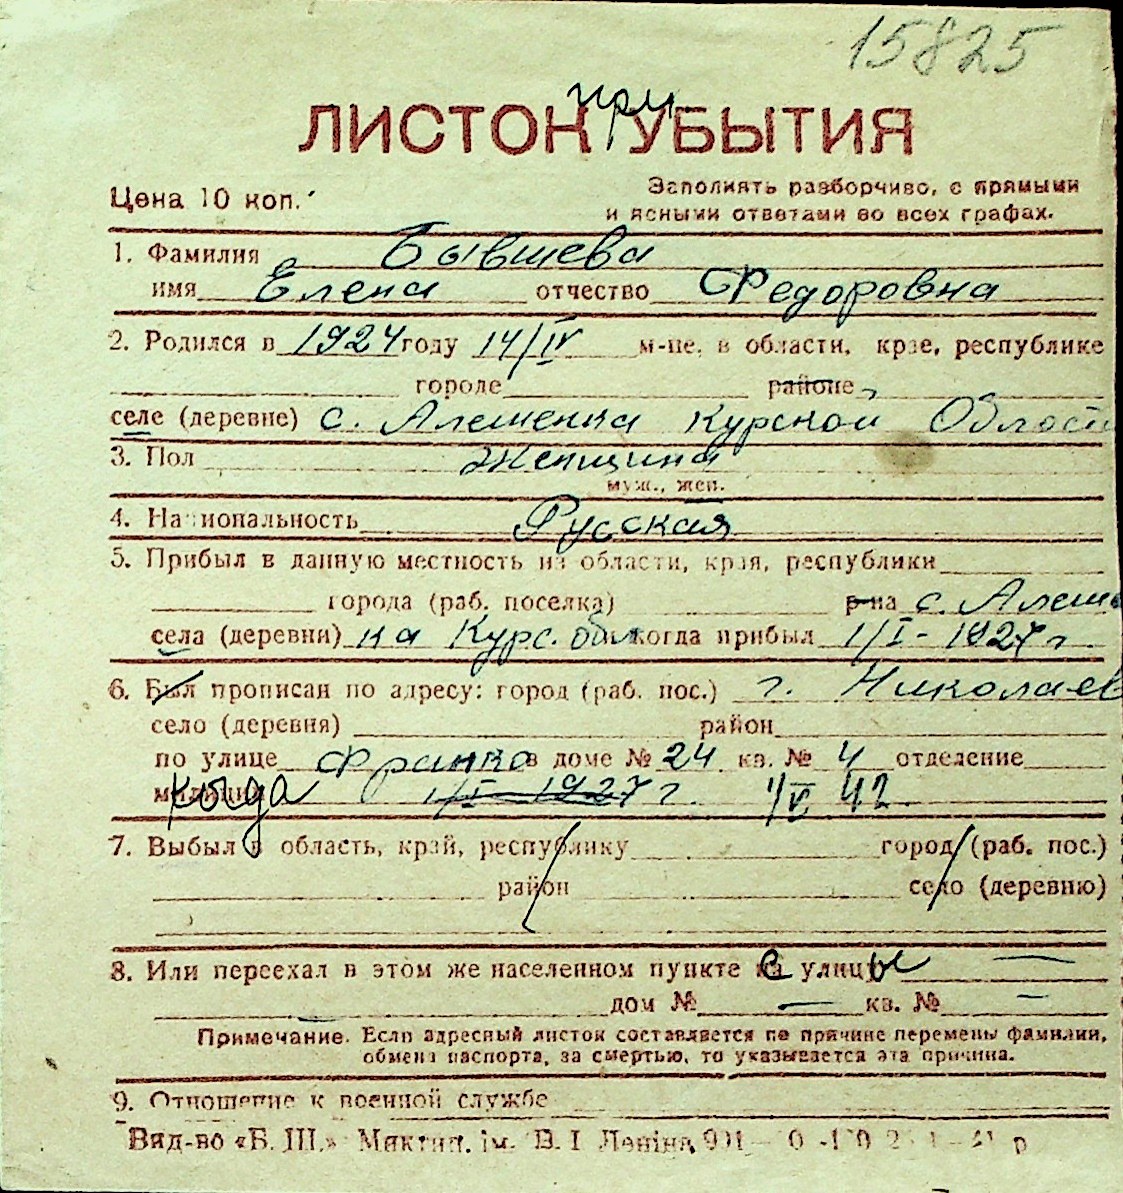 15825
при
ЛИСТОК УБЫТИЯ
Цена 10 коп.
Заполнять разборчиво, с прямыми
и ясными ответами во всех графах.
1. Фамилия Бывшева
имя Елена отчество Федоровна
2. Родился в 1924 году 14/IV м-це, в области, крае, республике
городе районе
селе (деревне) с. Алешенка Курской Област
3. Пол Женщина
муж., жен.
4. Национальность Русская
5. Прибыл в данную местность из области, края, республики
города (раб. поселка) р-на с. Алеше
села (деревни) ка Курс. обл когда прибыл 1/I - 1927 г.
6. Был прописан по адресу: город (раб. пос.) г. Николаев
село (деревня) район
по улице Франко в доме № 24 кв. № 4 отделение
милиции когда 1/I 1927 г. 1/V 42
7. Выбыл в область, край, республику город (раб. пос.)
район село (деревню)
8. Или переехал в этом же населенном пункте с улицы —
дом № — кв. № —
Примечание. Если адресный листок составляется по причине перемены фамилии,
обмена паспорта, за смертью, то указывается эта причина.
9. Отношение к военной службе
Вид-во «Б. Ш.» Миктип. ім. В. І Леніна,